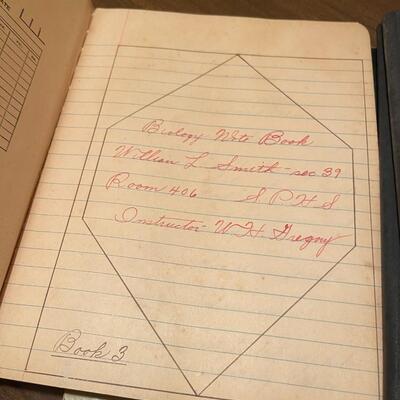 Biology Note Book
William L Smith - sec 39
Room 406 S P H S
Instructor - W H. Gregory
Book 3